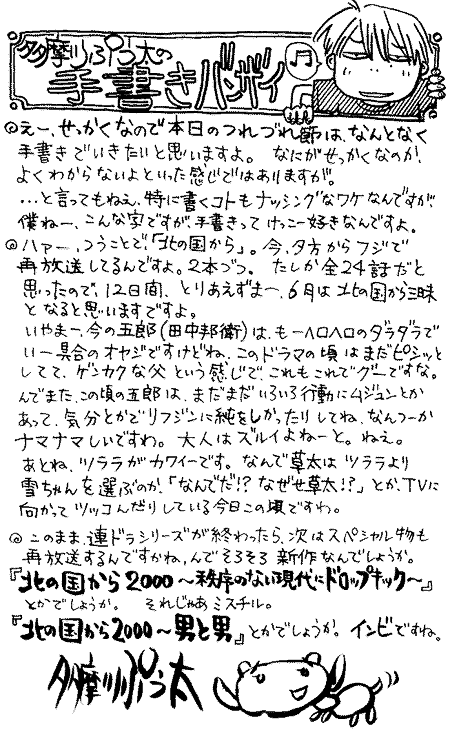 多摩川ぷう太の
手書きバンザイ
◎えー、せっかくなので本日のつれづれ節は、なんとなく
手書きでいきたいと思いますよ。なにがせっかくなのか、
よくわからないよといった感じではありますが。
…と言ってもねえ、特に書くコトもナッシングなワケなんですが
僕ねー、こんな字ですが、手書きってけっこー好きなんですよ。
◎ハァー、つうことで、「北の国から」。今、夕方からフジで
再放送してるんですよ。2本づつ。たしか全24話だと
思ったので、12日間、とりあえずまー、6月は北の国から三昧
となると思いますですよ。
いやまー、今の五郎(田中邦衛)は、もーヘロヘロのダラダラで
いー具合のオヤジですけどね、このドラマの頃はまだピシッと
してて、ゲンカクな父という感じで、これもこれでグーですな。
んでまた、この頃の五郎は、まだまだいろいろ行動にムジュンとか
あって、気分とかでリフジンに純をしかったりしてね、なんつーか
ナマナマしいですわ。大人はズルイよねーと。ねえ。
あとね、ツララがカワイーです。なんで草太はツララより
雪ちゃんを選ぶのか、「なんでだ!?なぜせ草太!?」とか、TVに
向かってツッコんだりしている今日この頃ですわ。
◎このまま、連ドラシリーズが終わったら、次はスペシャル物も
再放送するんですかね、んでそろそろ新作なんでしょうか。
『北の国から2000〜秩序のない現代にドロップキック〜』
とかでしょうが。それじゃあミスチル。
『北の国から2000〜男と男』とかでしょうか。インビですね。
多摩川ぷう太